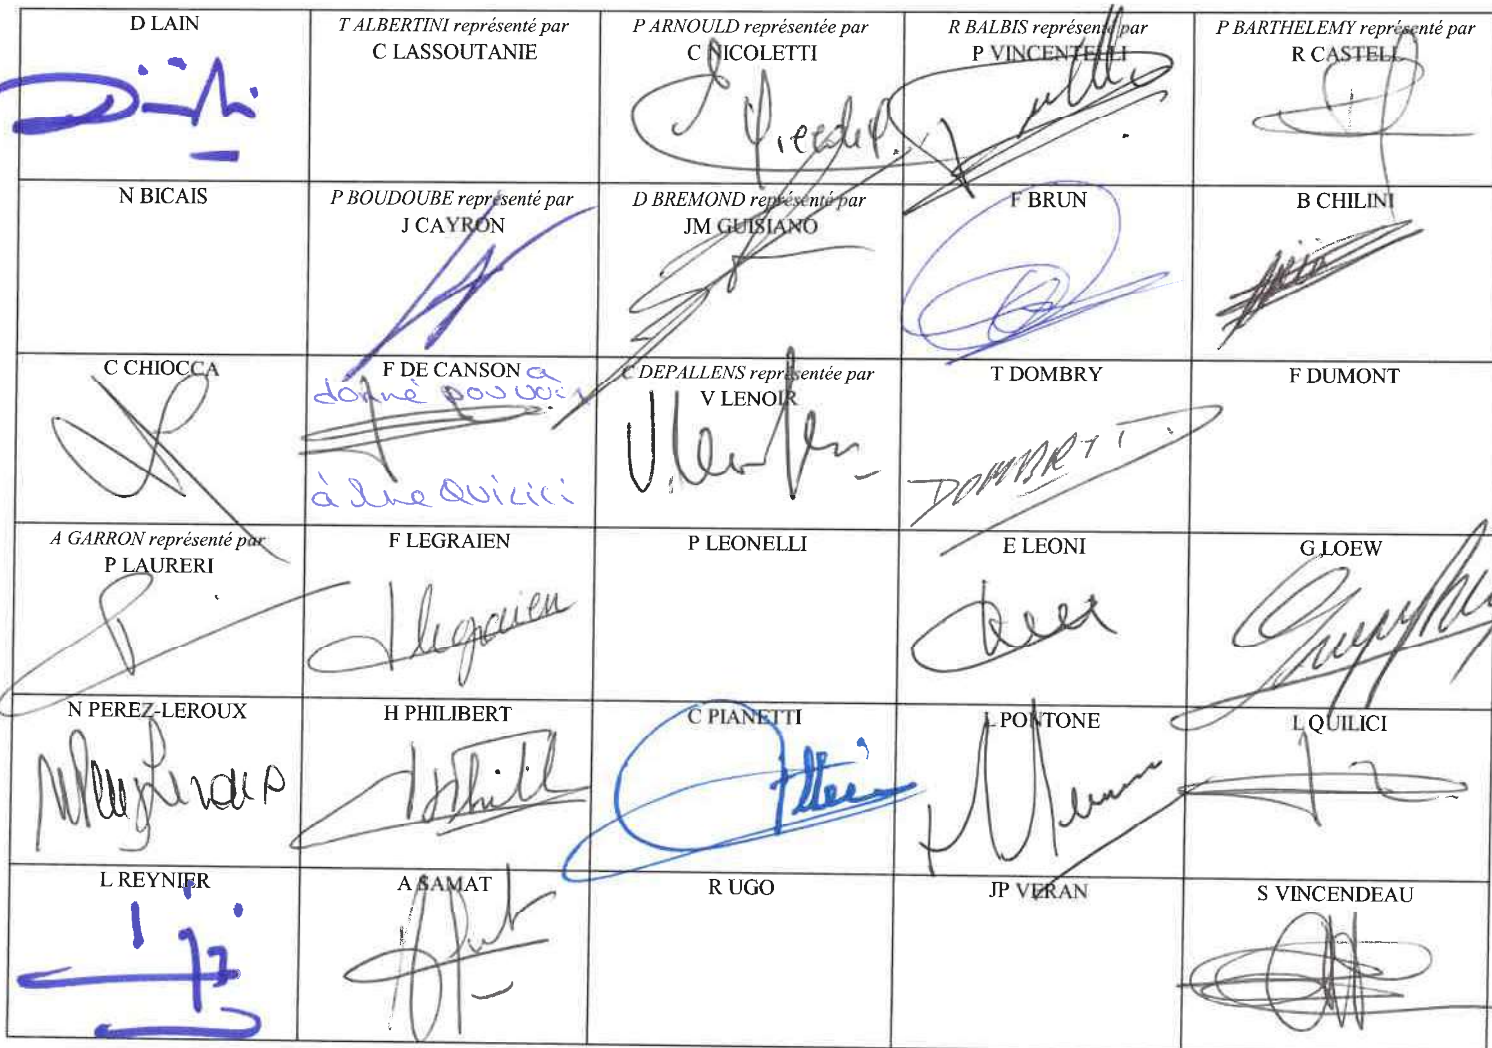 D LAIN
T ALBERTINI représenté par
C LASSOUTANIE
P ARNOULD représentée par
C NICOLETTI
R BALBIS représenté par
P VINCENTELLI
P BARTHELEMY représenté par
R CASTELL
N BICAIS
P BOUDOUBE représenté par
J CAYRON
D BREMOND représenté par
JM GUISIANO
F BRUN
B CHILINI
C CHIOCCA
F DE CANSON a
donné pouvoir
à Mme QUILICI
C DEPALLENS représentée par
V LENOIR
T DOMBRY
DOMBRY T.
F DUMONT
A GARRON représenté par
P LAURERI
F LEGRAIEN
Legraien
P LEONELLI
E LEONI
G LOEW
N PEREZ-LEROUX
H PHILIBERT
C PIANETTI
L PONTONE
L QUILICI
L REYNIER
A SAMAT
R UGO
JP VERAN
S VINCENDEAU